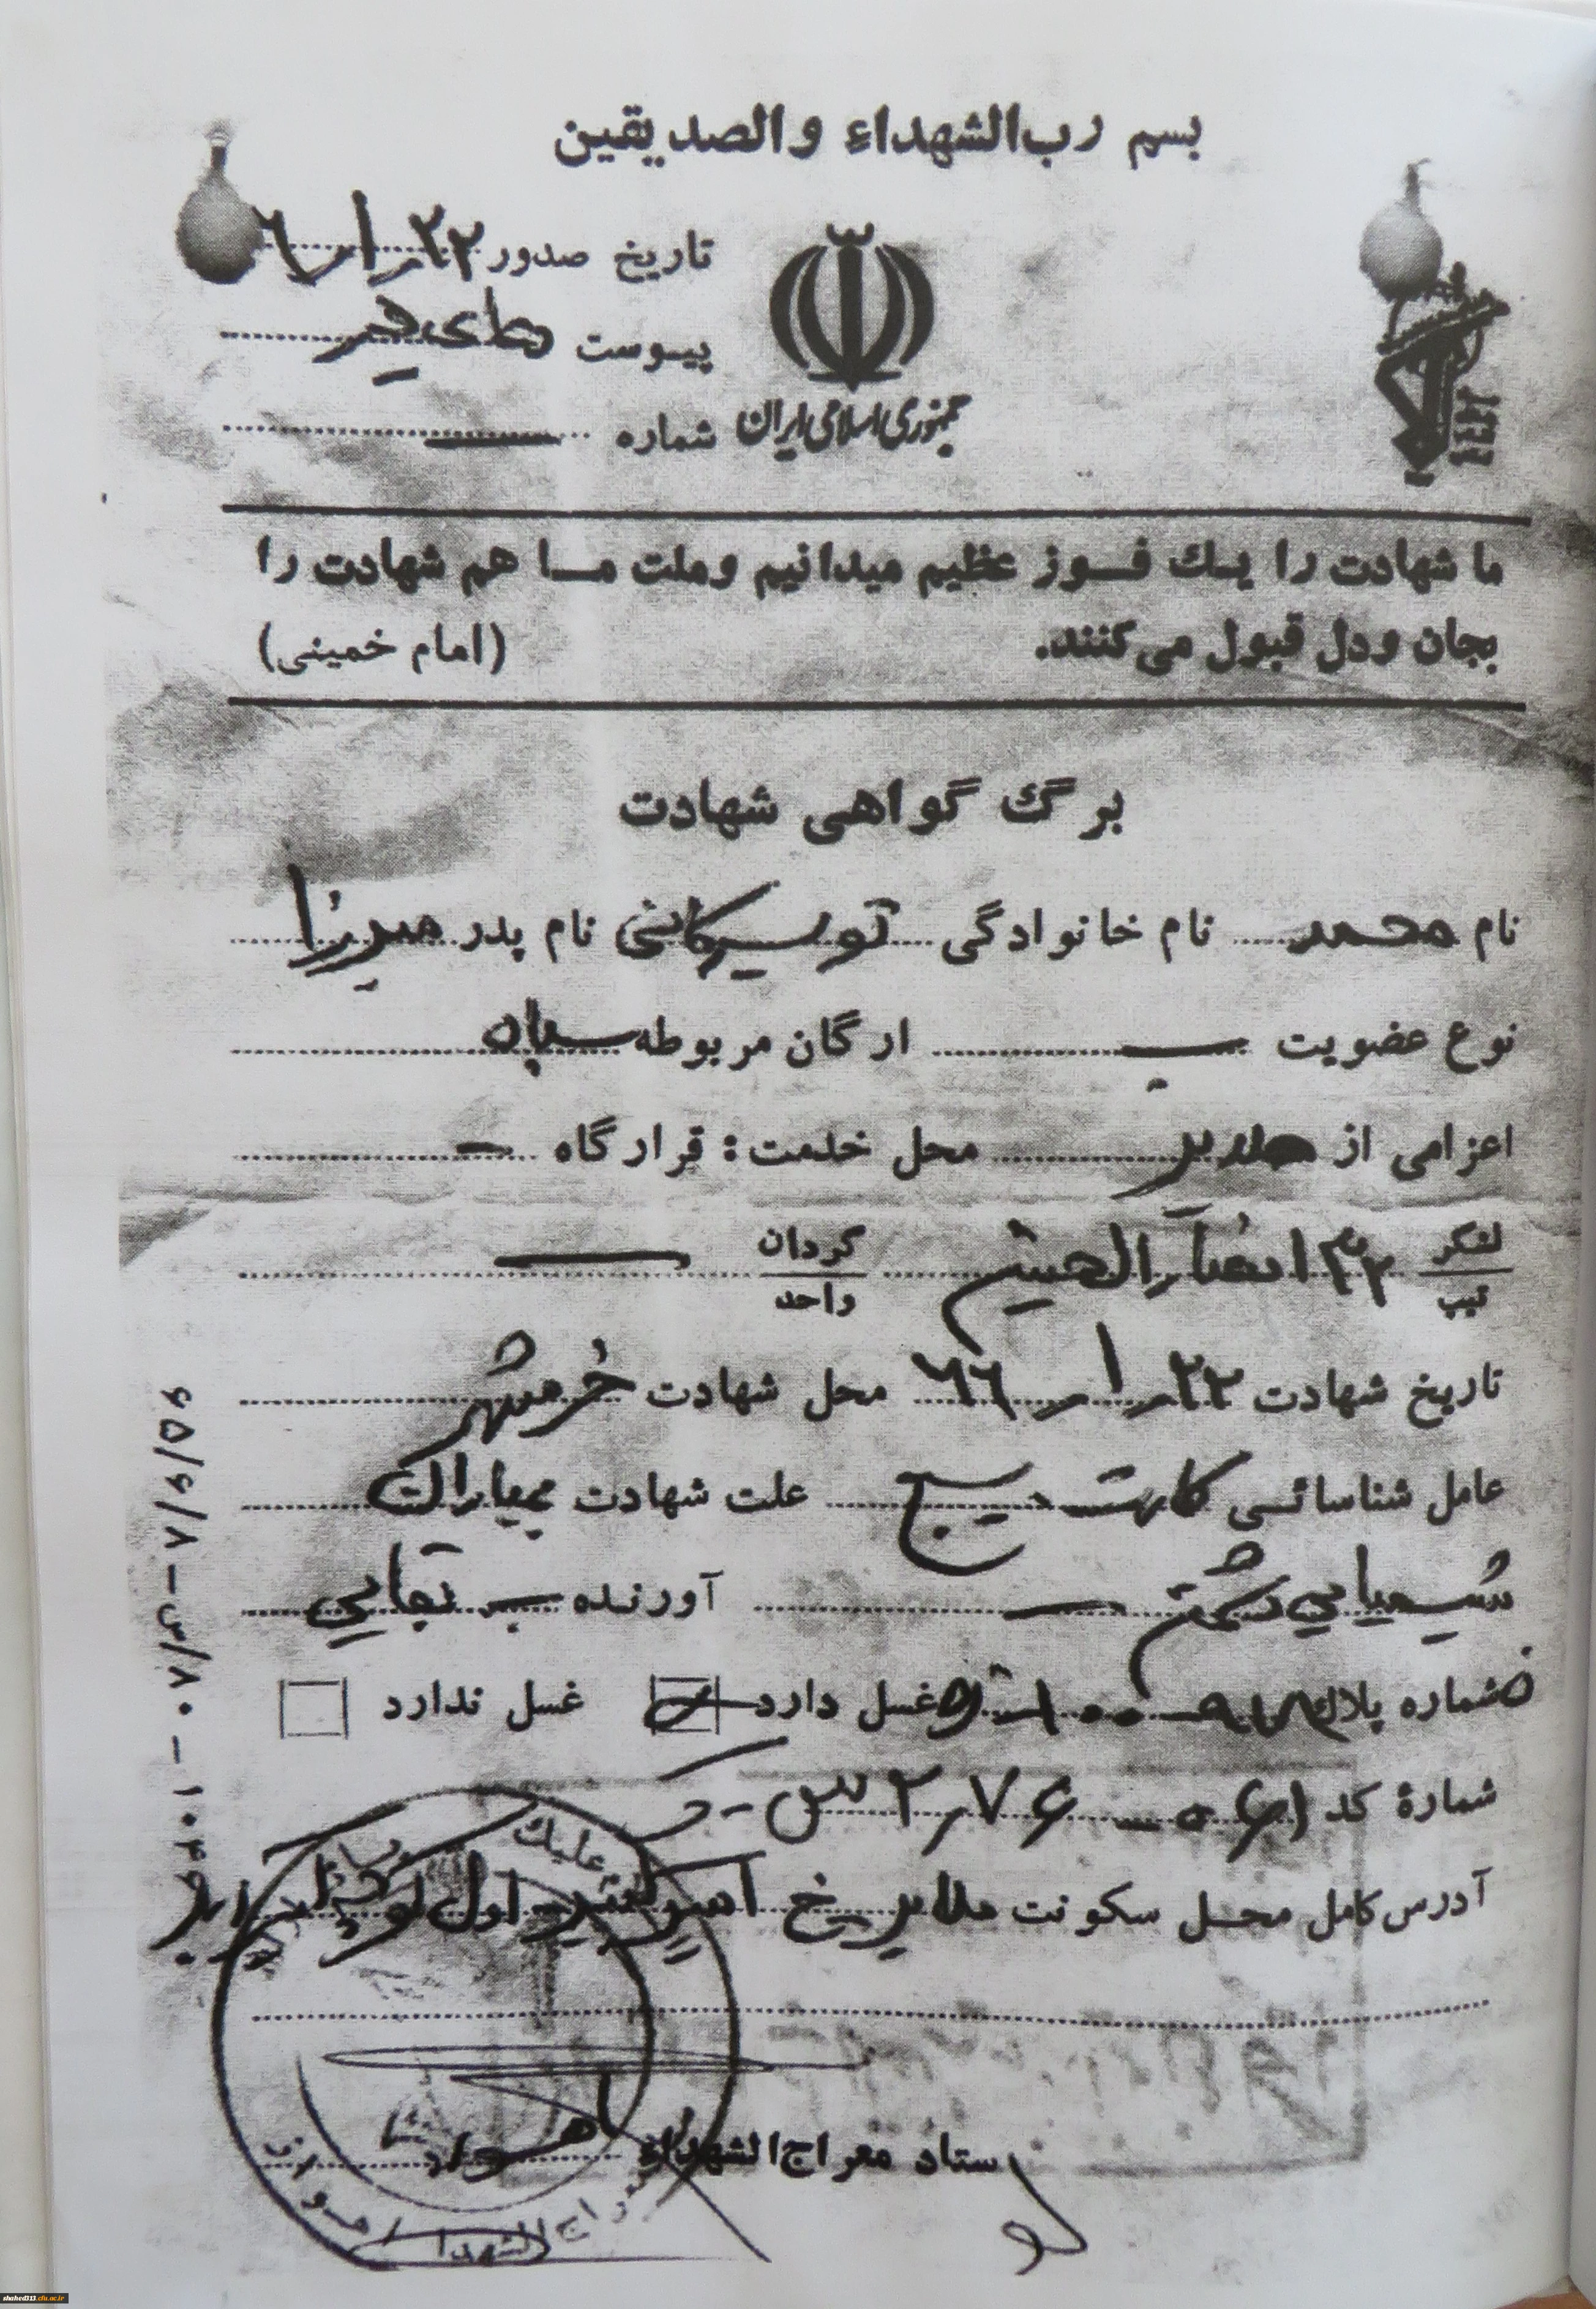 بسم رب‌الشهداء والصدیقین
تاریخ صدور ۲۲ ر ۱ ر ۶
پیوست
شماره —
جمهوری اسلامی ایران
ما شهادت را یک فوز عظیم میدانیم وملت ما هم شهادت را
بجان ودل قبول می‌کنند. (امام خمینی)
برگ گواهی شهادت
نام محمد نام خانوادگی تویسرکانی نام پدر میرزا
نوع عضویت ب ارگان مربوطه سپاه
اعزامی از ملایر محل خدمت: قرارگاه —
لشکر
تیپ
۳۲ انصار الحسین گردان
واحد
—
تاریخ شهادت ۲۲ ر ۱ ر ۶۶ محل شهادت خرمشهر
عامل شناسائی کارت بسیج علت شهادت بمباران
شیمیایی دشمن — آورنده
شماره پلاک غسل دارد غسل ندارد
شمارهٔ کد
آدرس کامل محل سکونت ملایر خ
ستاد معراج الشهداء اهواز
۶۵/۶/۷ – س/۷۰ – ۱۰۴۶
shahed313.cfu.ac.ir